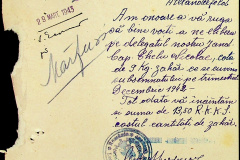 29 MAR. 1943
Am onoare a vă ruga
să bine voiți a ne elibera
pe delegatul nostru Jand
Cap Chelu Nicolae, cota
de 3 kg. zahăr ce se cuvine
subsemnatului pe trimestrul
Decembrie 1942 -
Tot odată vă înaintăm
și suma de 1350 R.K.K.S.
costul cantității de zahăr.